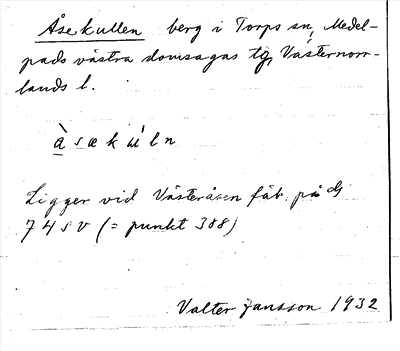 Åsekullen berg i Torps sn, Medel-
pads västra domsagas tg, Västernorr-
lands l.
àsækúln
Ligger vid Västeråsen fäb. på
74 SV (= punkt 388)
Valter Jansson 1932